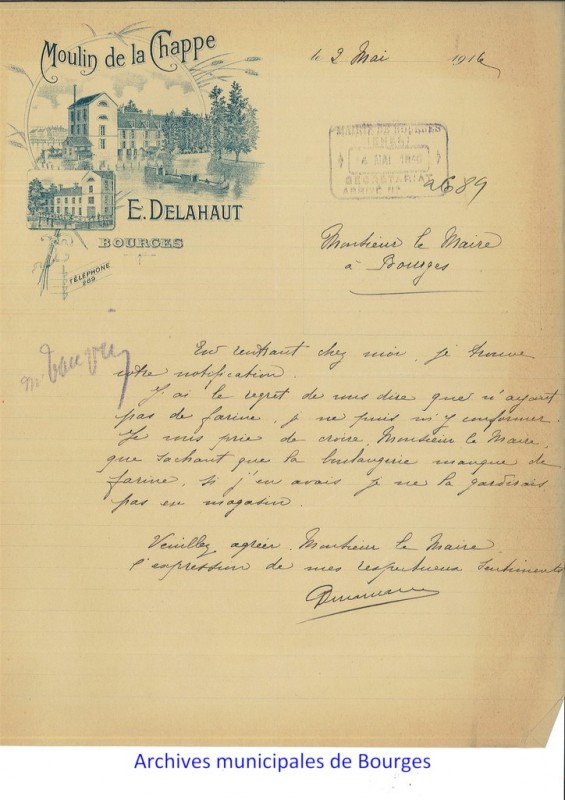 Moulin de la Chappe
E. DELAHAUT
BOURGES
TÉLÉPHONE
le 2 Mai 1916
MAIRIE DE BOURGES
(CHER)
4 MAI 1916
SECRÉTARIAT
ARRIVÉ No 2689
Monsieur le Maire
à Bourges
En rentrant chez moi, je trouve
votre notification.
J'ai le regret de vous dire que n'ayant
pas de farine, je ne puis m'y conformer.
Je vous prie de croire, Monsieur le Maire,
que sachant que la boulangerie manque de
farine, si j'en avais je ne la garderais
pas en magasin.
Veuillez agréer, Monsieur le Maire,
l'expression de mes respectueux sentiments
Archives municipales de Bourges